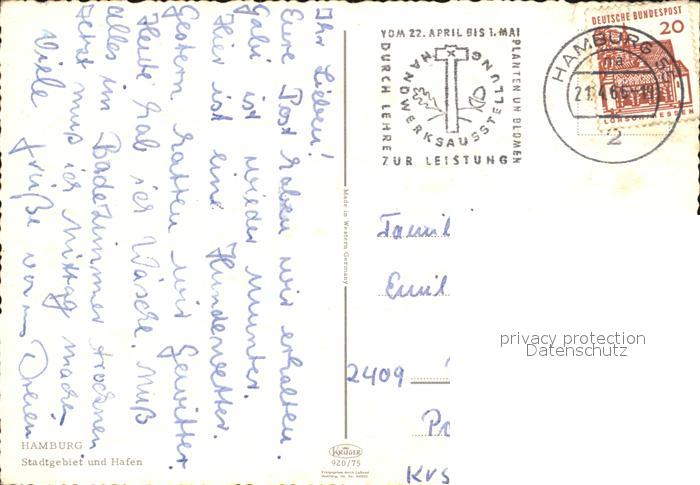 Ihr Lieben!
Eure Post haben wir erhalten.
Gabi ist wieder munter.
Hier ist eine Hundewetter.
Gestern hatten wir Gewitter
Heute hab ich Wäsche. Muß
alles im Badezimmer trocknen
Jetzt muß ich Mittag machen
Viele Grüße von Dreien
HAMBURG
Stadtgebiet und Hafen
Made in Western Germany
KRÜGER
920/75
VOM 22. APRIL BIS 1. MAI
PLANTEN UN BLOMEN
DURCH LEHRE
ZUR LEISTUNG
HANDWERKSAUSSTELLUNG
DEUTSCHE BUNDESPOST
20
LORSCH/HESSEN
HAMBURG
21.4.66
2
Famil
Emil
2409
KVS
privacy protection
Datenschutz